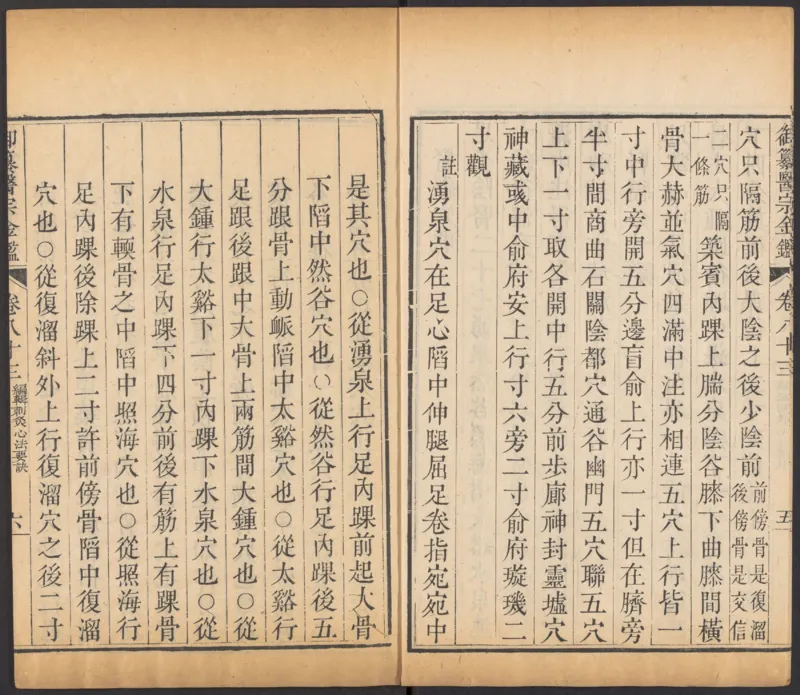 御纂醫宗金鑑 卷八十三 五
穴只隔筋前後大陰之後少陰前
前傍骨是復溜
後傍骨是交信
二穴只隔
一條筋
築賓內踝上腨分陰谷膝下曲膝間橫
骨大赫並氣穴四滿中注亦相連五穴上行皆一
寸中行旁開五分邊肓俞上行亦一寸但在臍旁
半寸間商曲石關陰都穴通谷幽門五穴聯五穴
上下一寸取各開中行五分前步廊神封靈墟穴
神藏彧中俞府安上行寸六旁二寸俞府璇璣二
寸觀
註湧泉穴在足心陷中伸腿屈足卷指宛宛中
是其穴也○從湧泉上行足內踝前起大骨
下陷中然谷穴也○從然谷行足內踝後五
分跟骨上動脈陷中太谿穴也○從太谿行
足跟後跟中大骨上兩筋間大鍾穴也○從
大鍾行太谿下一寸內踝下水泉穴也○從
水泉行足內踝下四分前後有筋上有踝骨
下有輭骨之中陷中照海穴也○從照海行
足內踝後除踝上二寸許前傍骨陷中復溜
穴也○從復溜斜外上行復溜穴之後二寸
御纂醫宗金鑑 卷八十三 編輯刺灸心法要訣 六